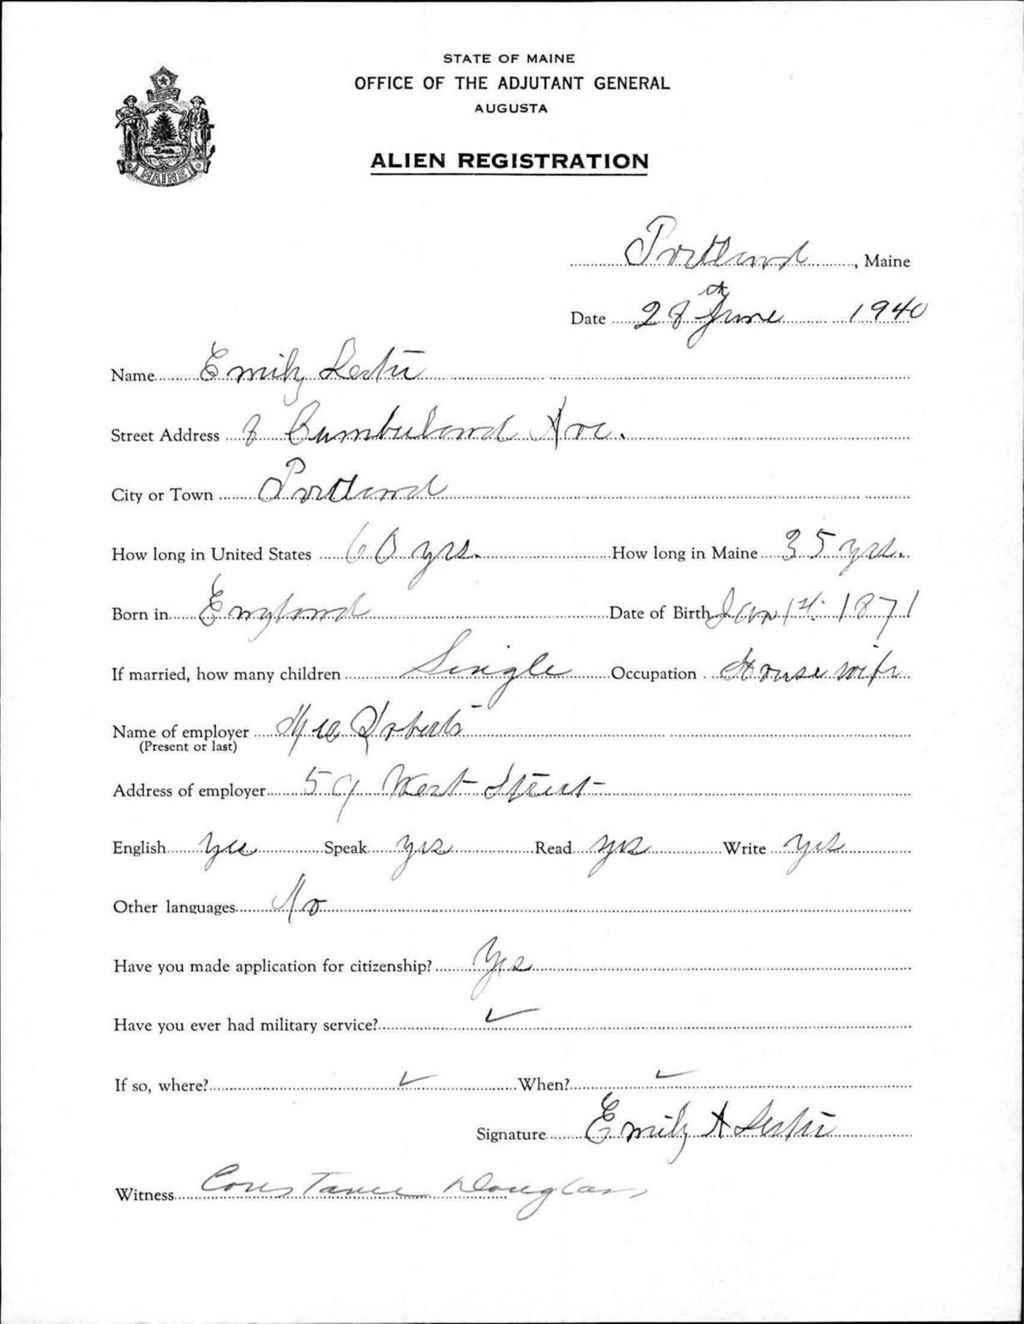 STATE OF MAINE
OFFICE OF THE ADJUTANT GENERAL
AUGUSTA
ALIEN REGISTRATION
MAINE
Portland, Maine
Date 28th June 1940
Name Emily
Street Address 8 Cumberland Ave.
City or Town Portland
How long in United States 60 yrs. How long in Maine 35 yrs.
Born in England Date of Birth Jan 1st. 1871
If married, how many children Single Occupation House wife
Name of employer Mrs Roberts
(Present or last)
Address of employer 59 West Street
English Yes Speak yes Read yes Write yes
Other languages No
Have you made application for citizenship? Yes
Have you ever had military service? ✓
If so, where? ✓ When? ✓
Signature Emily A
Witness Constance Douglass